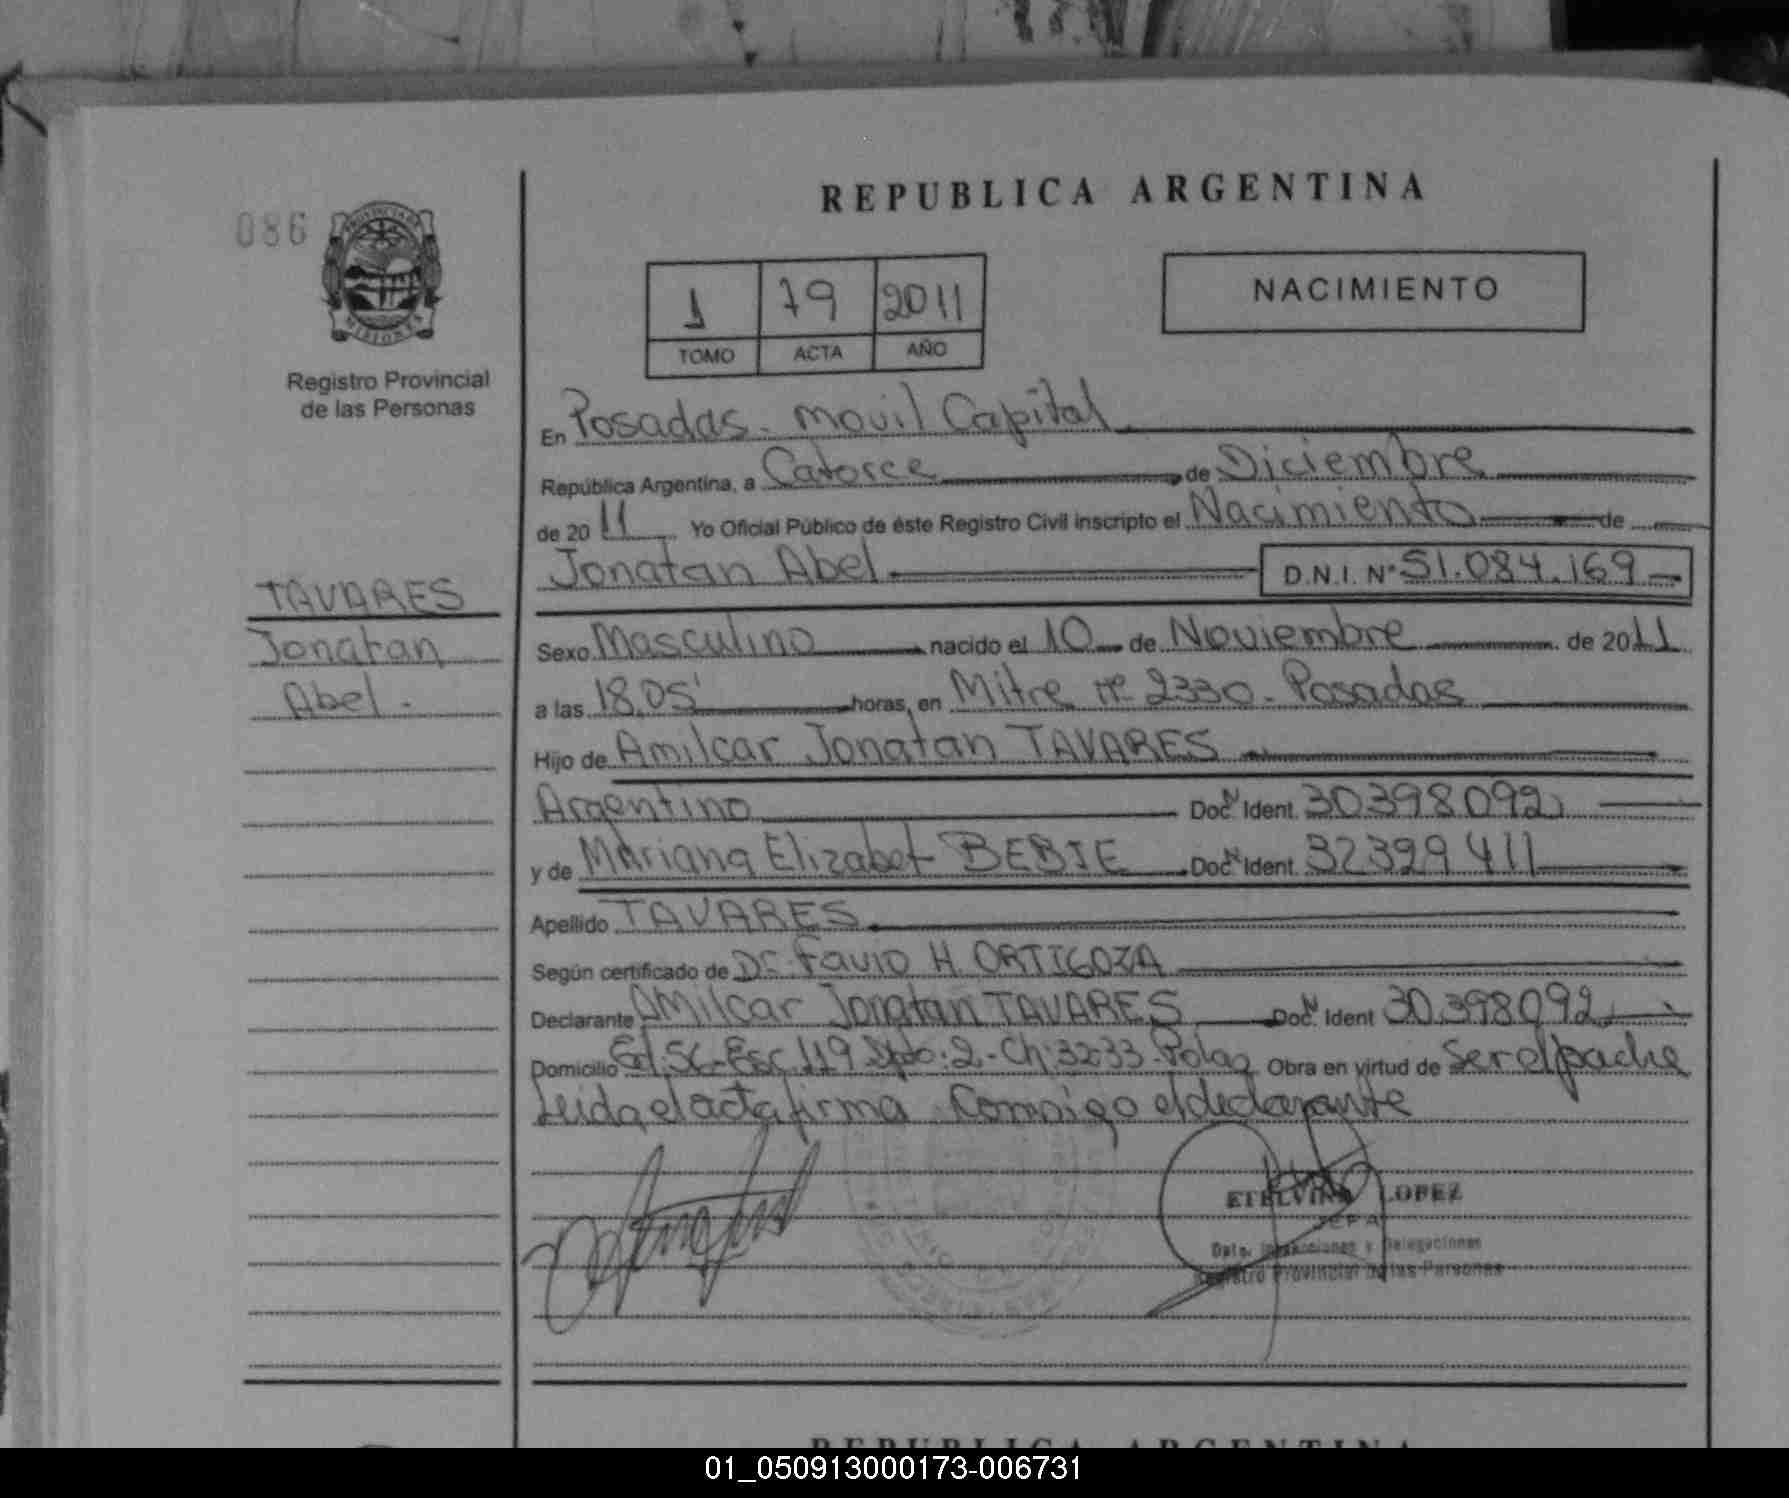 REPUBLICA ARGENTINA
086
PROVINCIA DE
MISIONES
Registro Provincial
de las Personas
1 79 2011
TOMO ACTA AÑO
NACIMIENTO
En Posadas - Movil Capital
República Argentina, a Catorce de Diciembre
de 2011 Yo Oficial Público de éste Registro Civil inscripto el Nacimiento de
Jonatan Abel D.N.I. Nº 51.084.169
TAVARES
Jonatan
Abel.
Sexo Masculino nacido el 10 de Noviembre de 2011
a las 18,05' horas, en Mitre nº 2330 - Posadas
Hijo de Amilcar Jonatan TAVARES
Argentino Doc. Ident. 30398092
y de Mariana Elizabet BEBIE Doc. Ident. 32399411
Apellido TAVARES
Según certificado de Dr. Favio H ORTIGOZA
Declarante Amilcar Jonatan TAVARES Doc. Ident 30.398092
Domicilio Esc. 119 Dpto: 2 - Ch: 32-33 - Pdas Obra en virtud de Ser el padre
Leida el acta firma Conmigo el declarante
ETELVINA LOPEZ
JEFA
Dpto. Inspecciones y Delegaciones
Registro Provincial de las Personas
REPUBLICA ARGENTINA
01_050913000173-006731